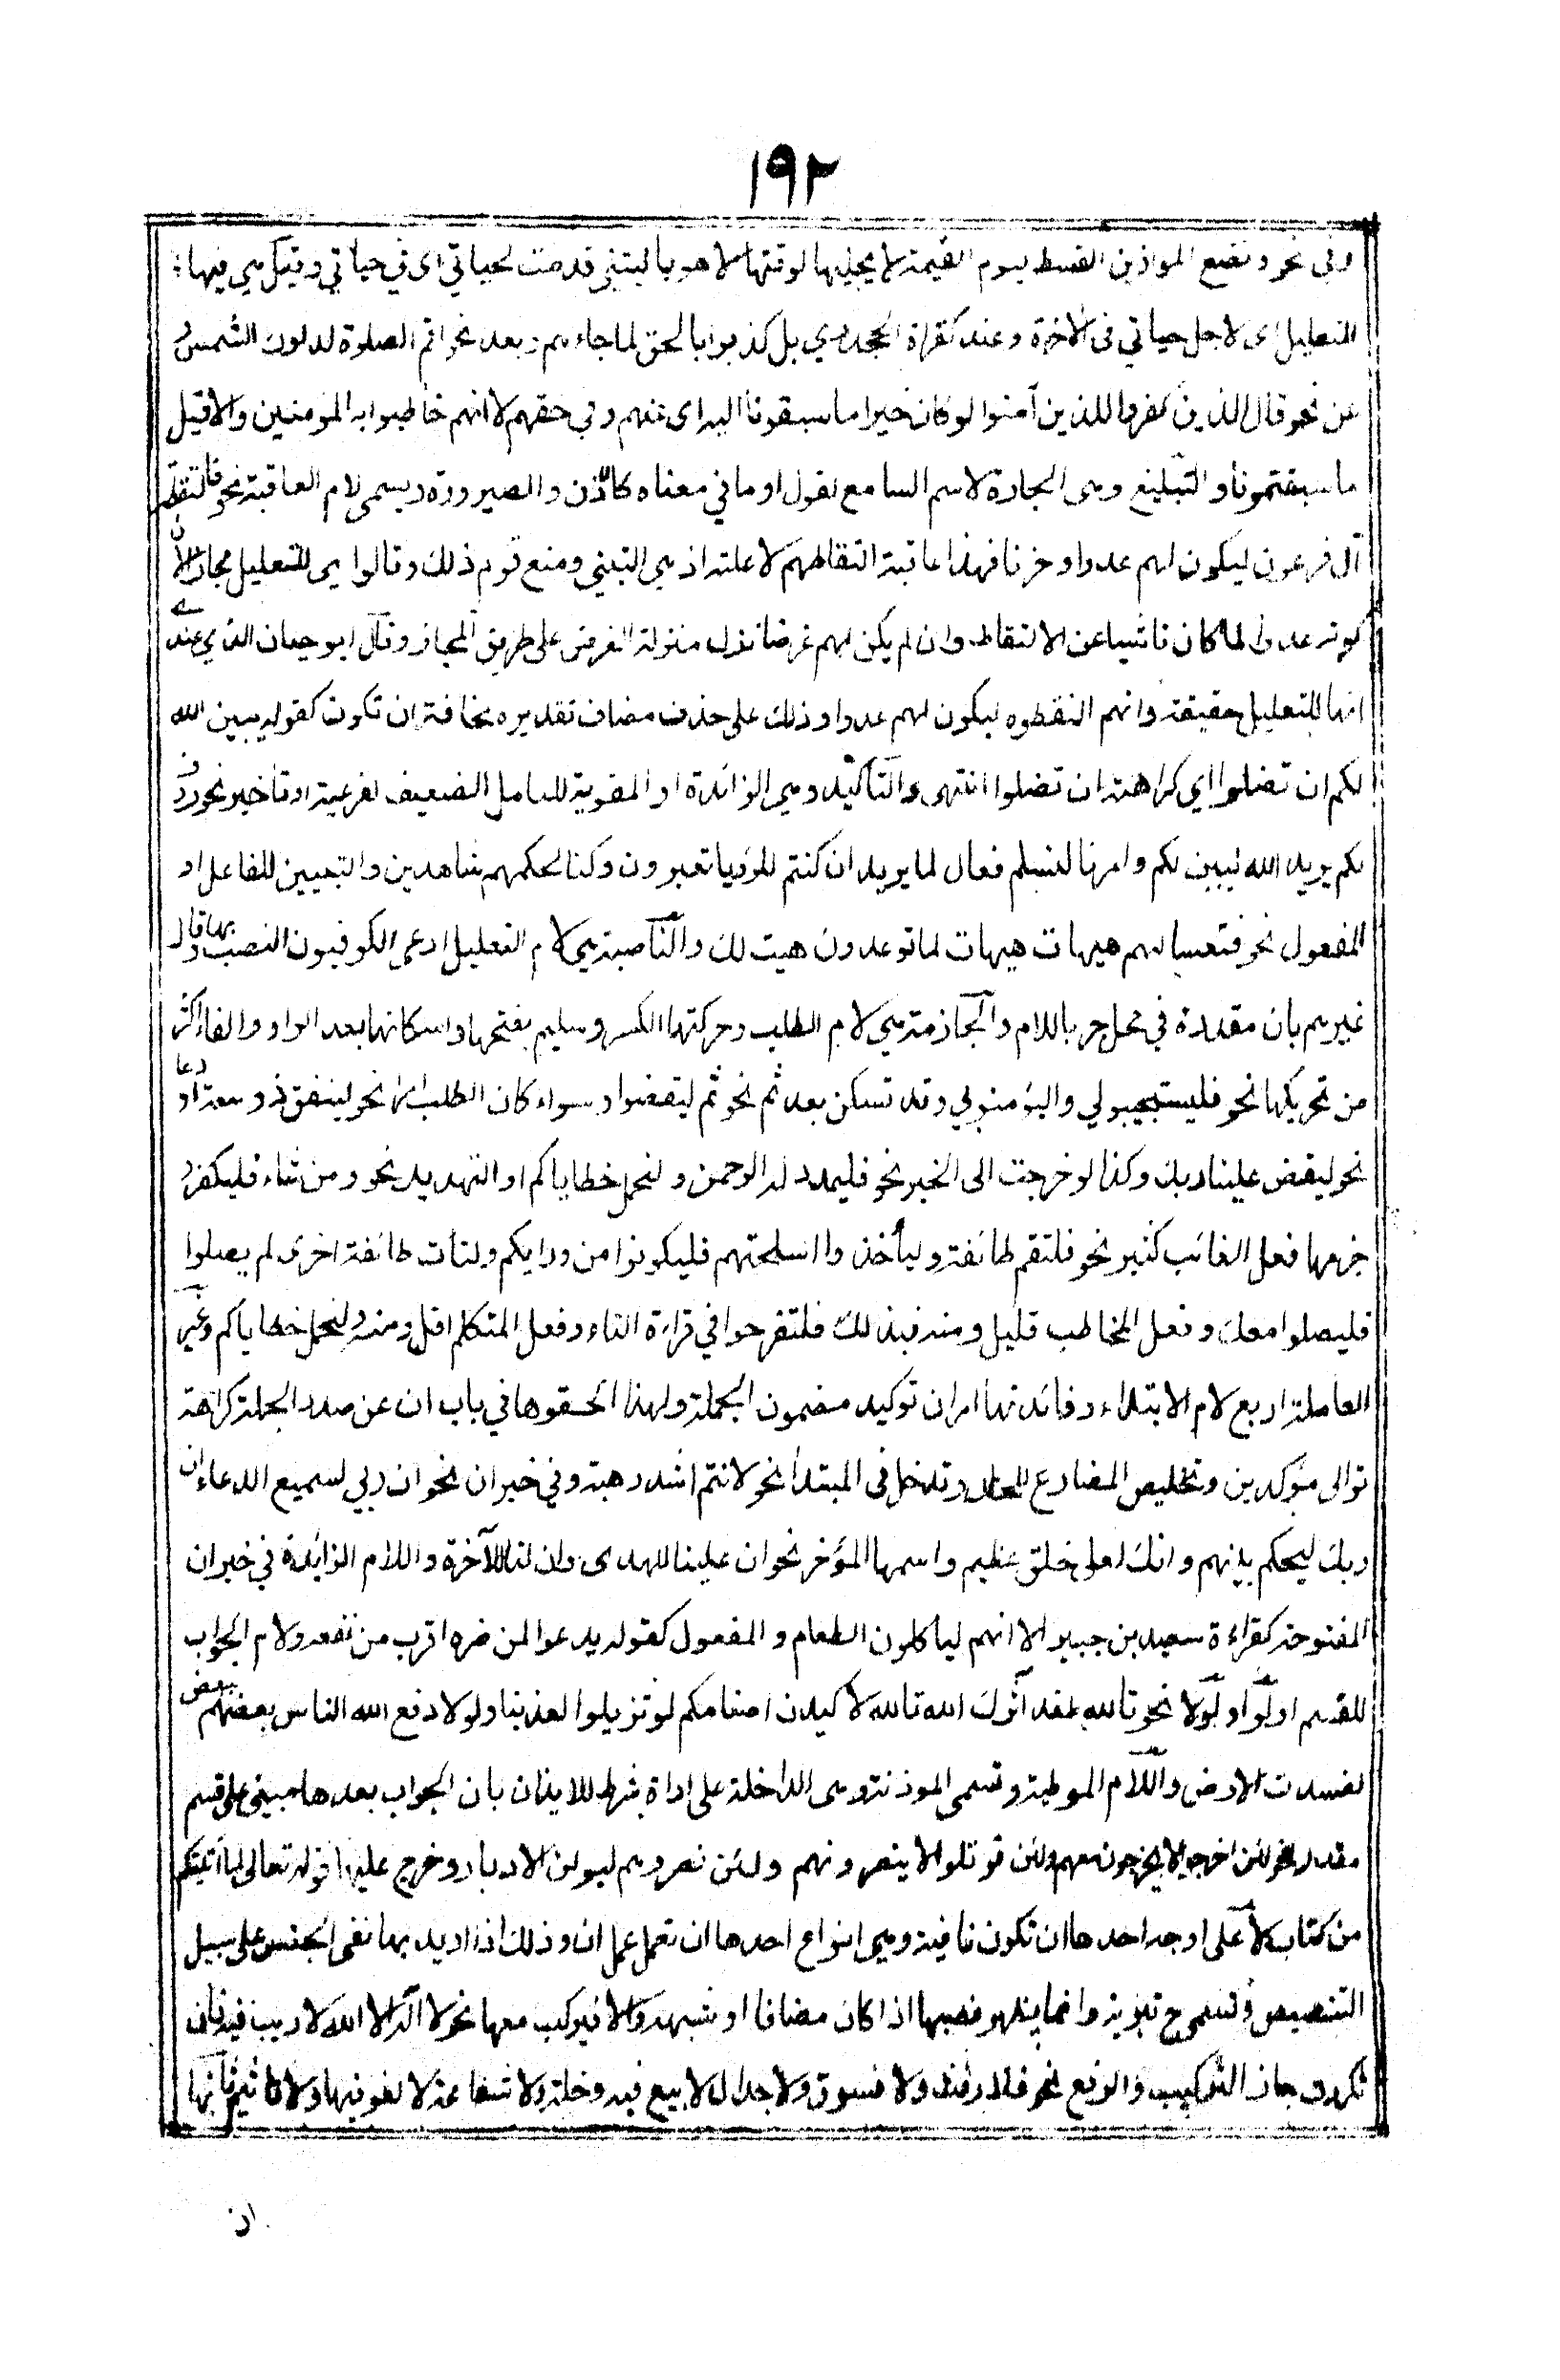 ١٩٢
وفى نحو ونضع الموازين القسط ليوم القيمة لا يجليها لوقتها الا هو يا ليتني قدمت لحياتي اى في حياتي وقيل هي فيها
للتعليل اى لاجل حياتي فى الاخرة وعند كقراة الجحدري بل كذبوا بالحق لما جاءهم وبعد نحو اقم الصلوة لدلوك الشمس و
عن نحو قال الذين كفروا للذين آمنوا لو كان خيرا ما سبقونا اليه اى عنهم وفي حقهم لا انهم خاطبوا به المومنين والا قيل
ما سبقتمونا والتبليغ وهى الجارة لاسم السامع لقول او ما في معناه كالاذن والصيرورة ويسمى لام العاقبة نحو فالتقطه
آل فرعون ليكون لهم عدوا وحزنا فهذا عاقبة التقاطهم لا علته اذ هي التبني ومنع قوم ذلك وقالوا هى للتعليل مجازا لان
كونه عدوا لما كان ناشيا عن الالتقاط وان لم يكن لهم غرضا نزل منزلة الغرض على طريق المجاز وقال ابو حيان الذي عندى
انها للتعليل حقيقة وانهم التقطوه ليكون لهم عدوا وذلك على حذف مضاف تقديره مخافة ان تكون كقوله يبين الله
لكم ان تضلوا اي كراهة ان تضلوا انتهى والتأكيد وهي الزائدة او المقوية للعامل الضعيف لفرعية او تاخير نحو ردف
لكم يريد الله ليبين لكم وامرنا لنسلم فعال لما يريد ان كنتم للرؤيا تعبرون وكنا لحكمهم شاهدين والتبيين للفاعل او
المفعول نحو فتعسا لهم هيهات هيهات لما توعدون هيت لك والناصبة هي لام التعليل ادعى الكوفيون النصب بها وقال
غيرهم بان مقدرة في محل جر باللام والجازمة هي لام الطلب وحركتها الكسر وسليم بفتحها واسكانها بعد الواو والفاء اكثر
من تحريكها نحو فليستجيبوا لي واليؤمنوا بي وقد تسكن بعد ثم نحو ثم ليقضوا وسواء كان الطلب امرا نحو لينفق ذو سعة او دعا
نحو ليقض علينا ربك وكذا لو خرجت الى الخبر نحو فليمدد له الرحمن ولنحمل خطاياكم او التهديد نحو ومن شاء فليكفر و
جزمها فعل الغائب كثير نحو فلتقم طائفة وليأخذوا اسلحتهم فليكونوا من ورايكم ولتات طائفة اخرى لم يصلوا
فليصلوا معك وفعل المخاطب قليل ومنه فبذلك فلتفرحوا في قراءة التاء وفعل المتكلم اقل ومنه ولنحمل خطاياكم وغير
العاملة اربع لام الابتداء وفائدتها امران توكيد مضمون الجملة ولهذا الحقوها في باب ان عن صدر الجملة كراهة
توالى مؤكدين وتخليص المضارع للحال وتدخل فى المبتدأ نحو لانتم اشد رهبة وفي خبر ان نحو ان ربي لسميع الدعاء ان
ربك ليحكم بينهم وانك لعلى خلق عظيم واسمها المؤخر نحو ان علينا للهدى وان لنا للآخرة واللام الزايدة في خبر ان
المفتوحة كقراءة سعيد بن جبير الا انهم لياكلون الطعام والمفعول كقوله يدعوا لمن ضره اقرب من نفعه ولام الجواب
للقسم او لو او لولا نحو تالله لقد آثرك الله تالله لاكيدن اصنامكم لو تزيلوا لعذبنا ولولا دفع الله الناس بعضهم ببعض
لفسدت الارض واللام الموطية وتسمى الموذنة وهى الداخلة على اداة شرط للايذان بان الجواب بعدها مبنى على قسم
مقدر نحو لئن اخرجوا لا يخرجون معهم ولئن قوتلوا لا ينصرونهم ولئن نصروهم ليولن الادبار وخرج عليها قوله تعالى لما آتيتكم
من كتاب لا على اوجه احدها ان تكون نافية وهي انواع احدها ان تعمل عمل ان وذلك اذا اريد بها نفى الجنس على سبيل
التنصيص وتسمى ح تبرية وانما يظهر نصبها اذا كان مضافا او شبهه والا فيركب معها نحو لا اله الا الله لا ريب فيه فان
تكررت جاز التركيب والرفع نحو فلا رفث ولا فسوق ولا جدال لا بيع فيه ولا خلة ولا شفاعة لا لغو فيها ولا تاثيم ثانيها
ان